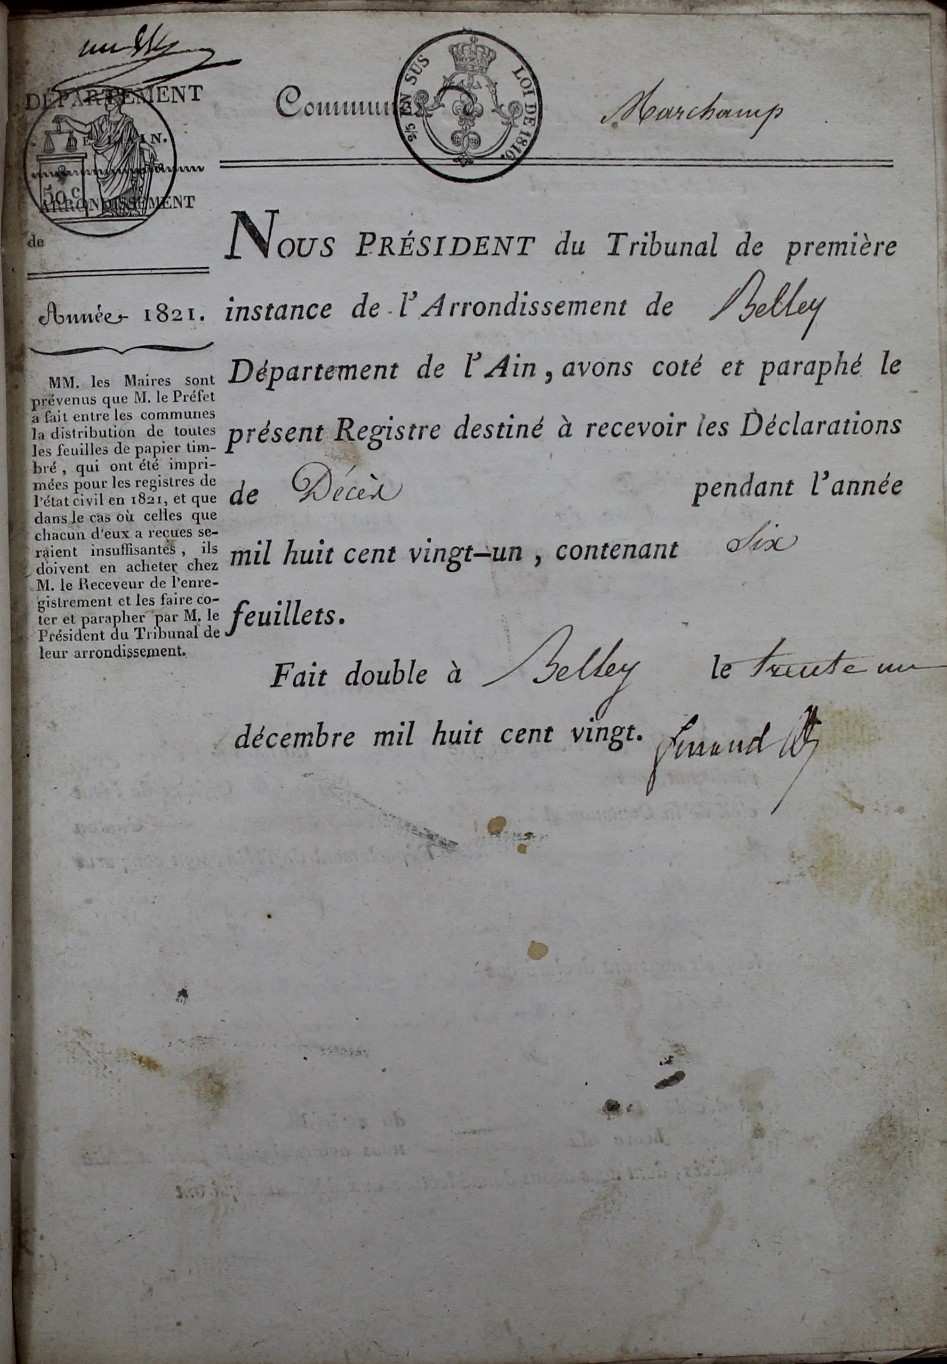 DÉPARTEMENT
DE L'AIN.
50 c
ARRONDISSEMENT
de
Année 1821.
MM. les Maires sont
prévenus que M. le Préfet
a fait entre les communes
la distribution de toutes
les feuilles de papier tim-
bré, qui ont été impri-
mées pour les registres de
l'état civil en 1821, et que
dans le cas où celles que
chacun d'eux a reçues se-
raient insuffisantes, ils
doivent en acheter chez
M. le Receveur de l'enre-
gistrement et les faire co-
ter et parapher par M. le
Président du Tribunal de
leur arrondissement.
Commune Marchamp
2/5 EN SUS LOI DE 1816.
NOUS PRÉSIDENT du Tribunal de première
instance de l'Arrondissement de Belley
Département de l'Ain, avons coté et paraphé le
présent Registre destiné à recevoir les Déclarations
de Décès pendant l'année
mil huit cent vingt-un, contenant Six
feuillets.
Fait double à Belley le trente un
décembre mil huit cent vingt.